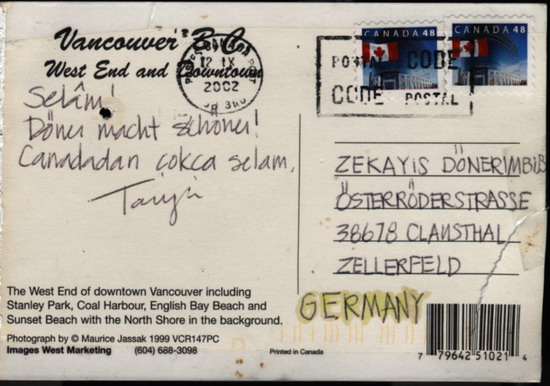 Vancouver B.C.
West End and Downtown
CANADA 48
CANADA 48
CANADA POST
12 IX
2002
POSTAL CODE
CODE POSTAL
Selâm!
Döner macht schöner!
Canadadan çokca selam.
ZEKAYIS DÖNERIMBIB
ÖSTERRÖDERSTRASSE
38678 CLAUSTHAL
ZELLERFELD
GERMANY
The West End of downtown Vancouver including
Stanley Park, Coal Harbour, English Bay Beach and
Sunset Beach with the North Shore in the background.
Photograph by © Maurice Jassak 1999 VCR147PC
Images West Marketing (604) 688-3098
Printed in Canada
7 79642 51021 4